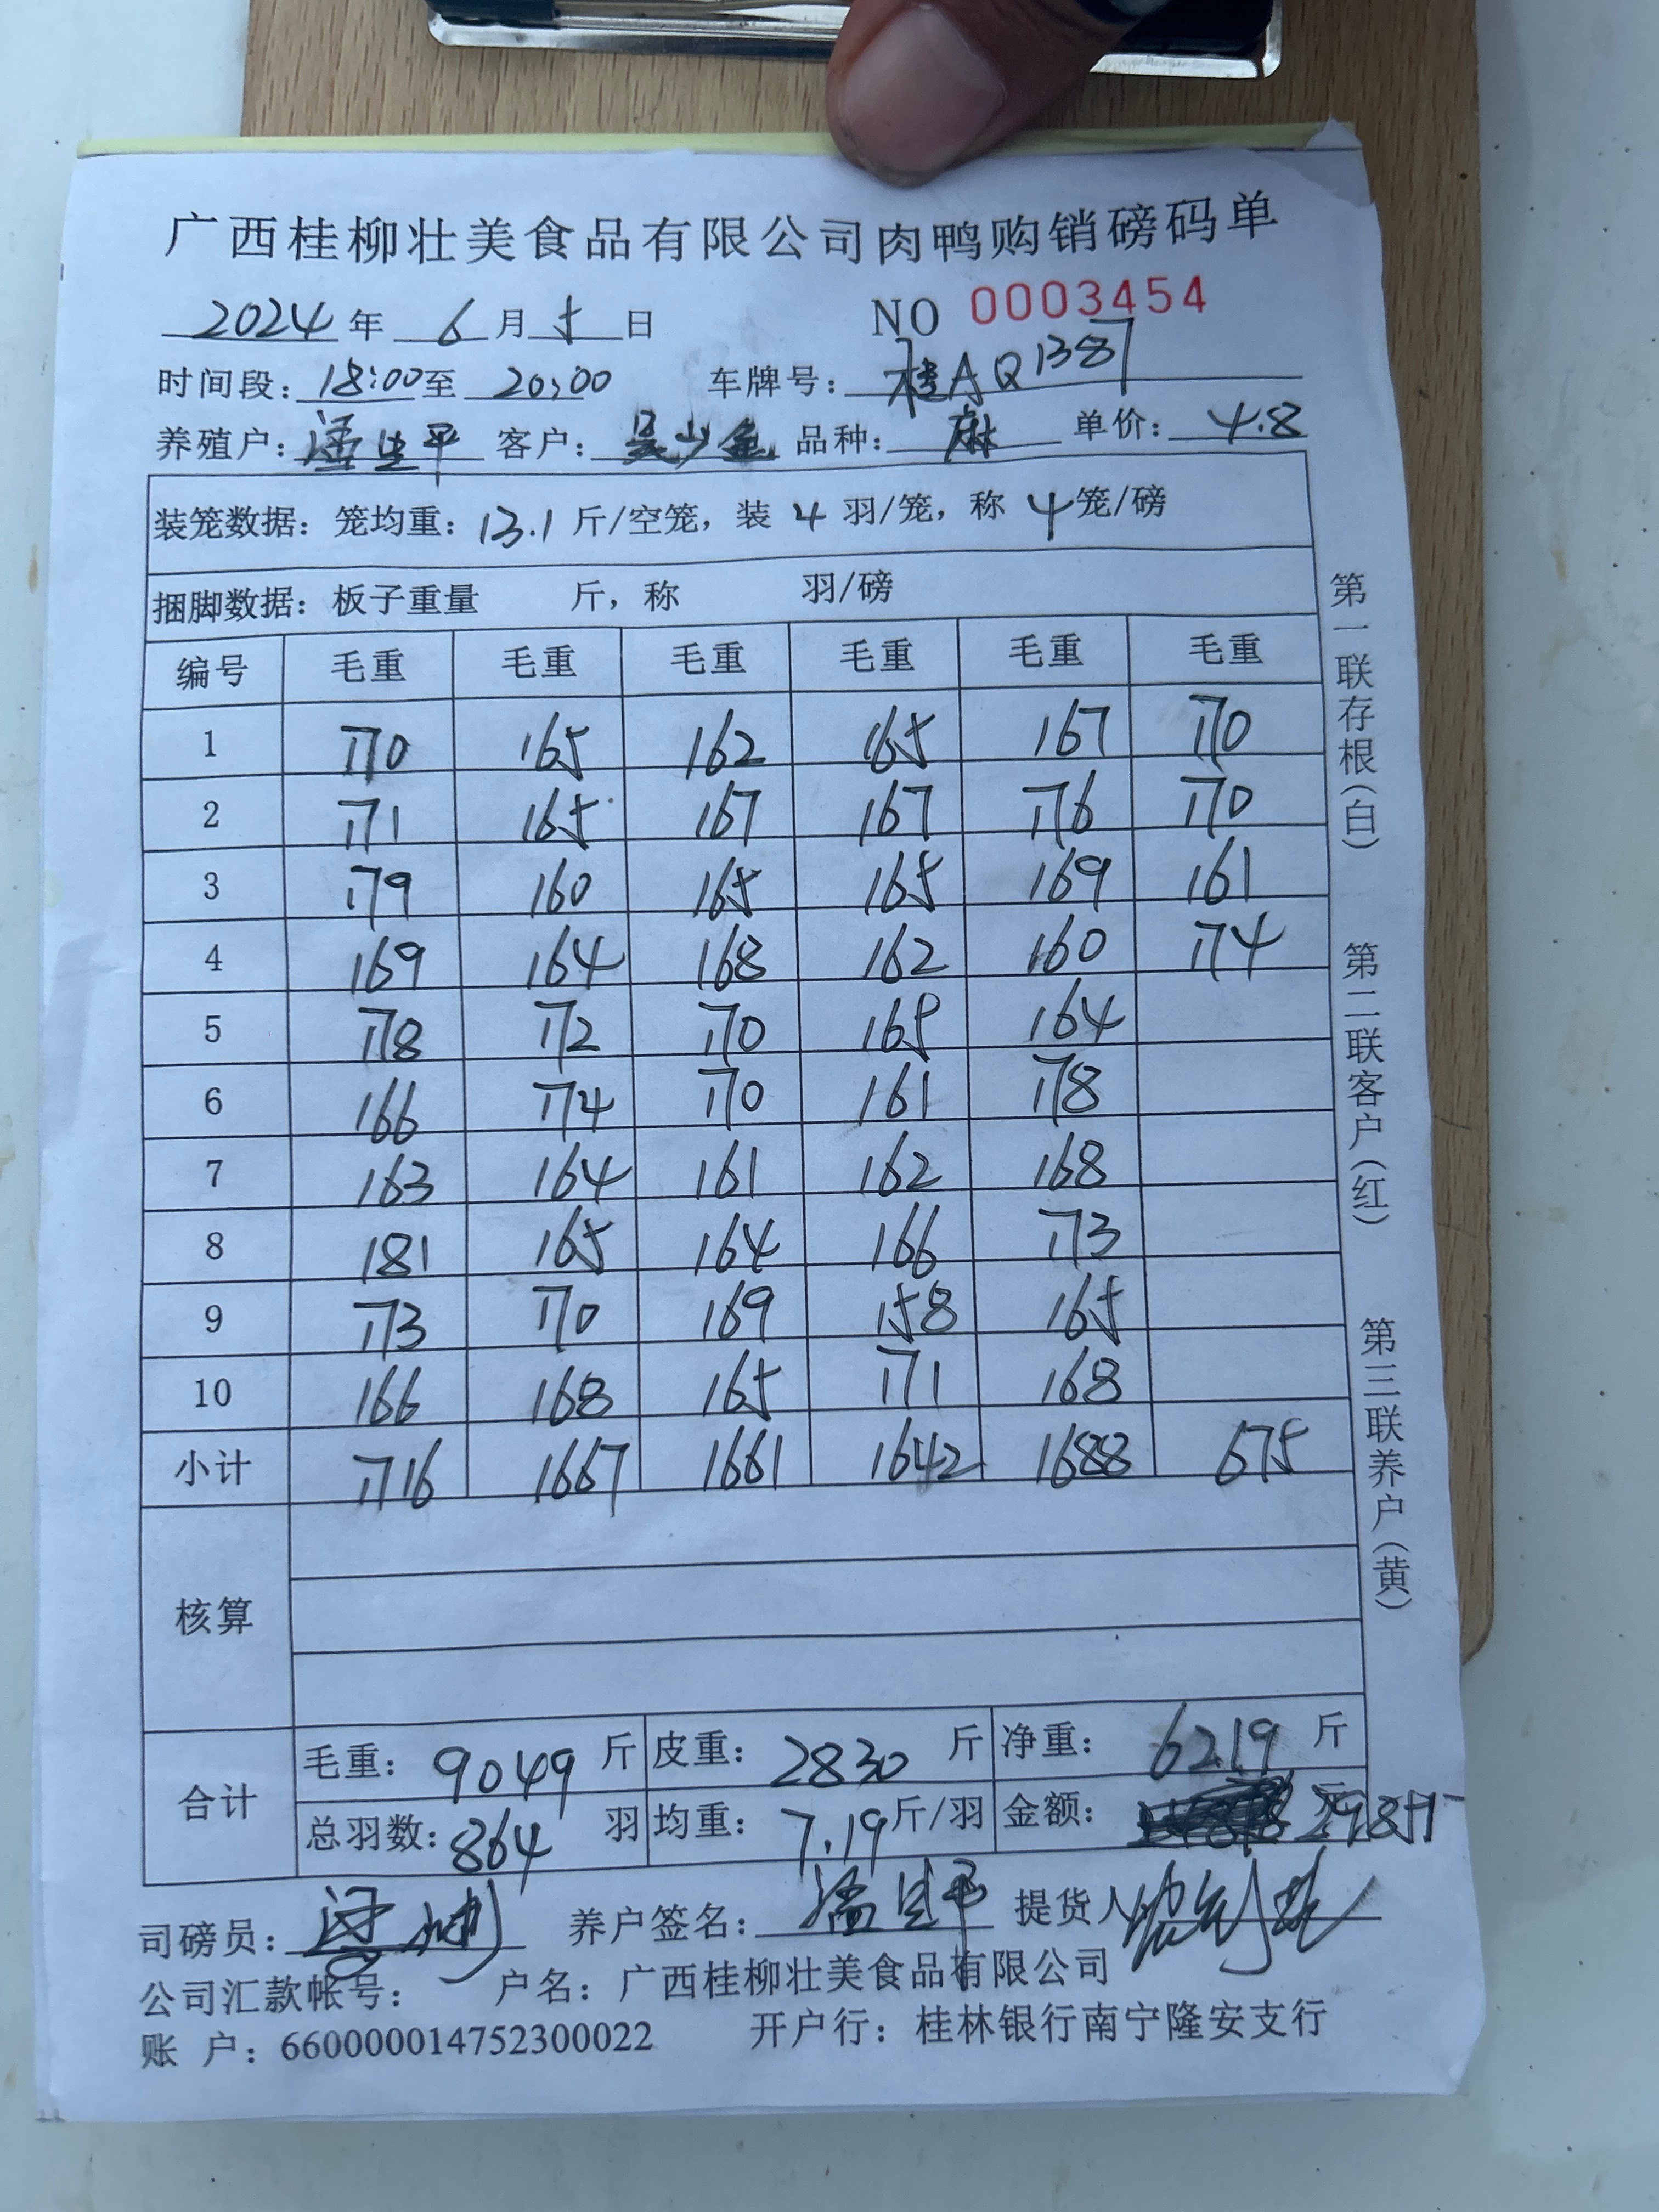 广西桂柳壮美食品有限公司肉鸭购销磅码单
2024年 6月 5日 NO 0003454
时间段：18:00至 20:00 车牌号：桂AQ1387
养殖户：潘生平 客户：吴少鱼 品种：麻 单价：4.8
装笼数据：笼均重：13.1斤/空笼，装 4 羽/笼，称 4笼/磅
捆脚数据：板子重量 斤，称 羽/磅
编号 毛重 毛重 毛重 毛重 毛重 毛重
1 170 165 162 165 167 170
2 171 165 167 167 176 170
3 179 160 165 165 169 161
4 169 164 168 162 160 174
5 178 172 170 165 164
6 166 174 170 161 178
7 163 164 161 162 168
8 181 165 164 166 173
9 173 170 169 158 165
10 166 168 165 171 168
小计 1716 1667 1661 1642 1688 675
核算
合计 毛重：9049斤 皮重：2830斤 净重：6219斤
总羽数：864羽 均重：7.19斤/羽 金额：29851
司磅员： 养户签名：潘生平 提货人
公司汇款帐号： 户名：广西桂柳壮美食品有限公司
账 户：660000014752300022 开户行：桂林银行南宁隆安支行
第一联存根（白） 第二联客户（红） 第三联养户（黄）